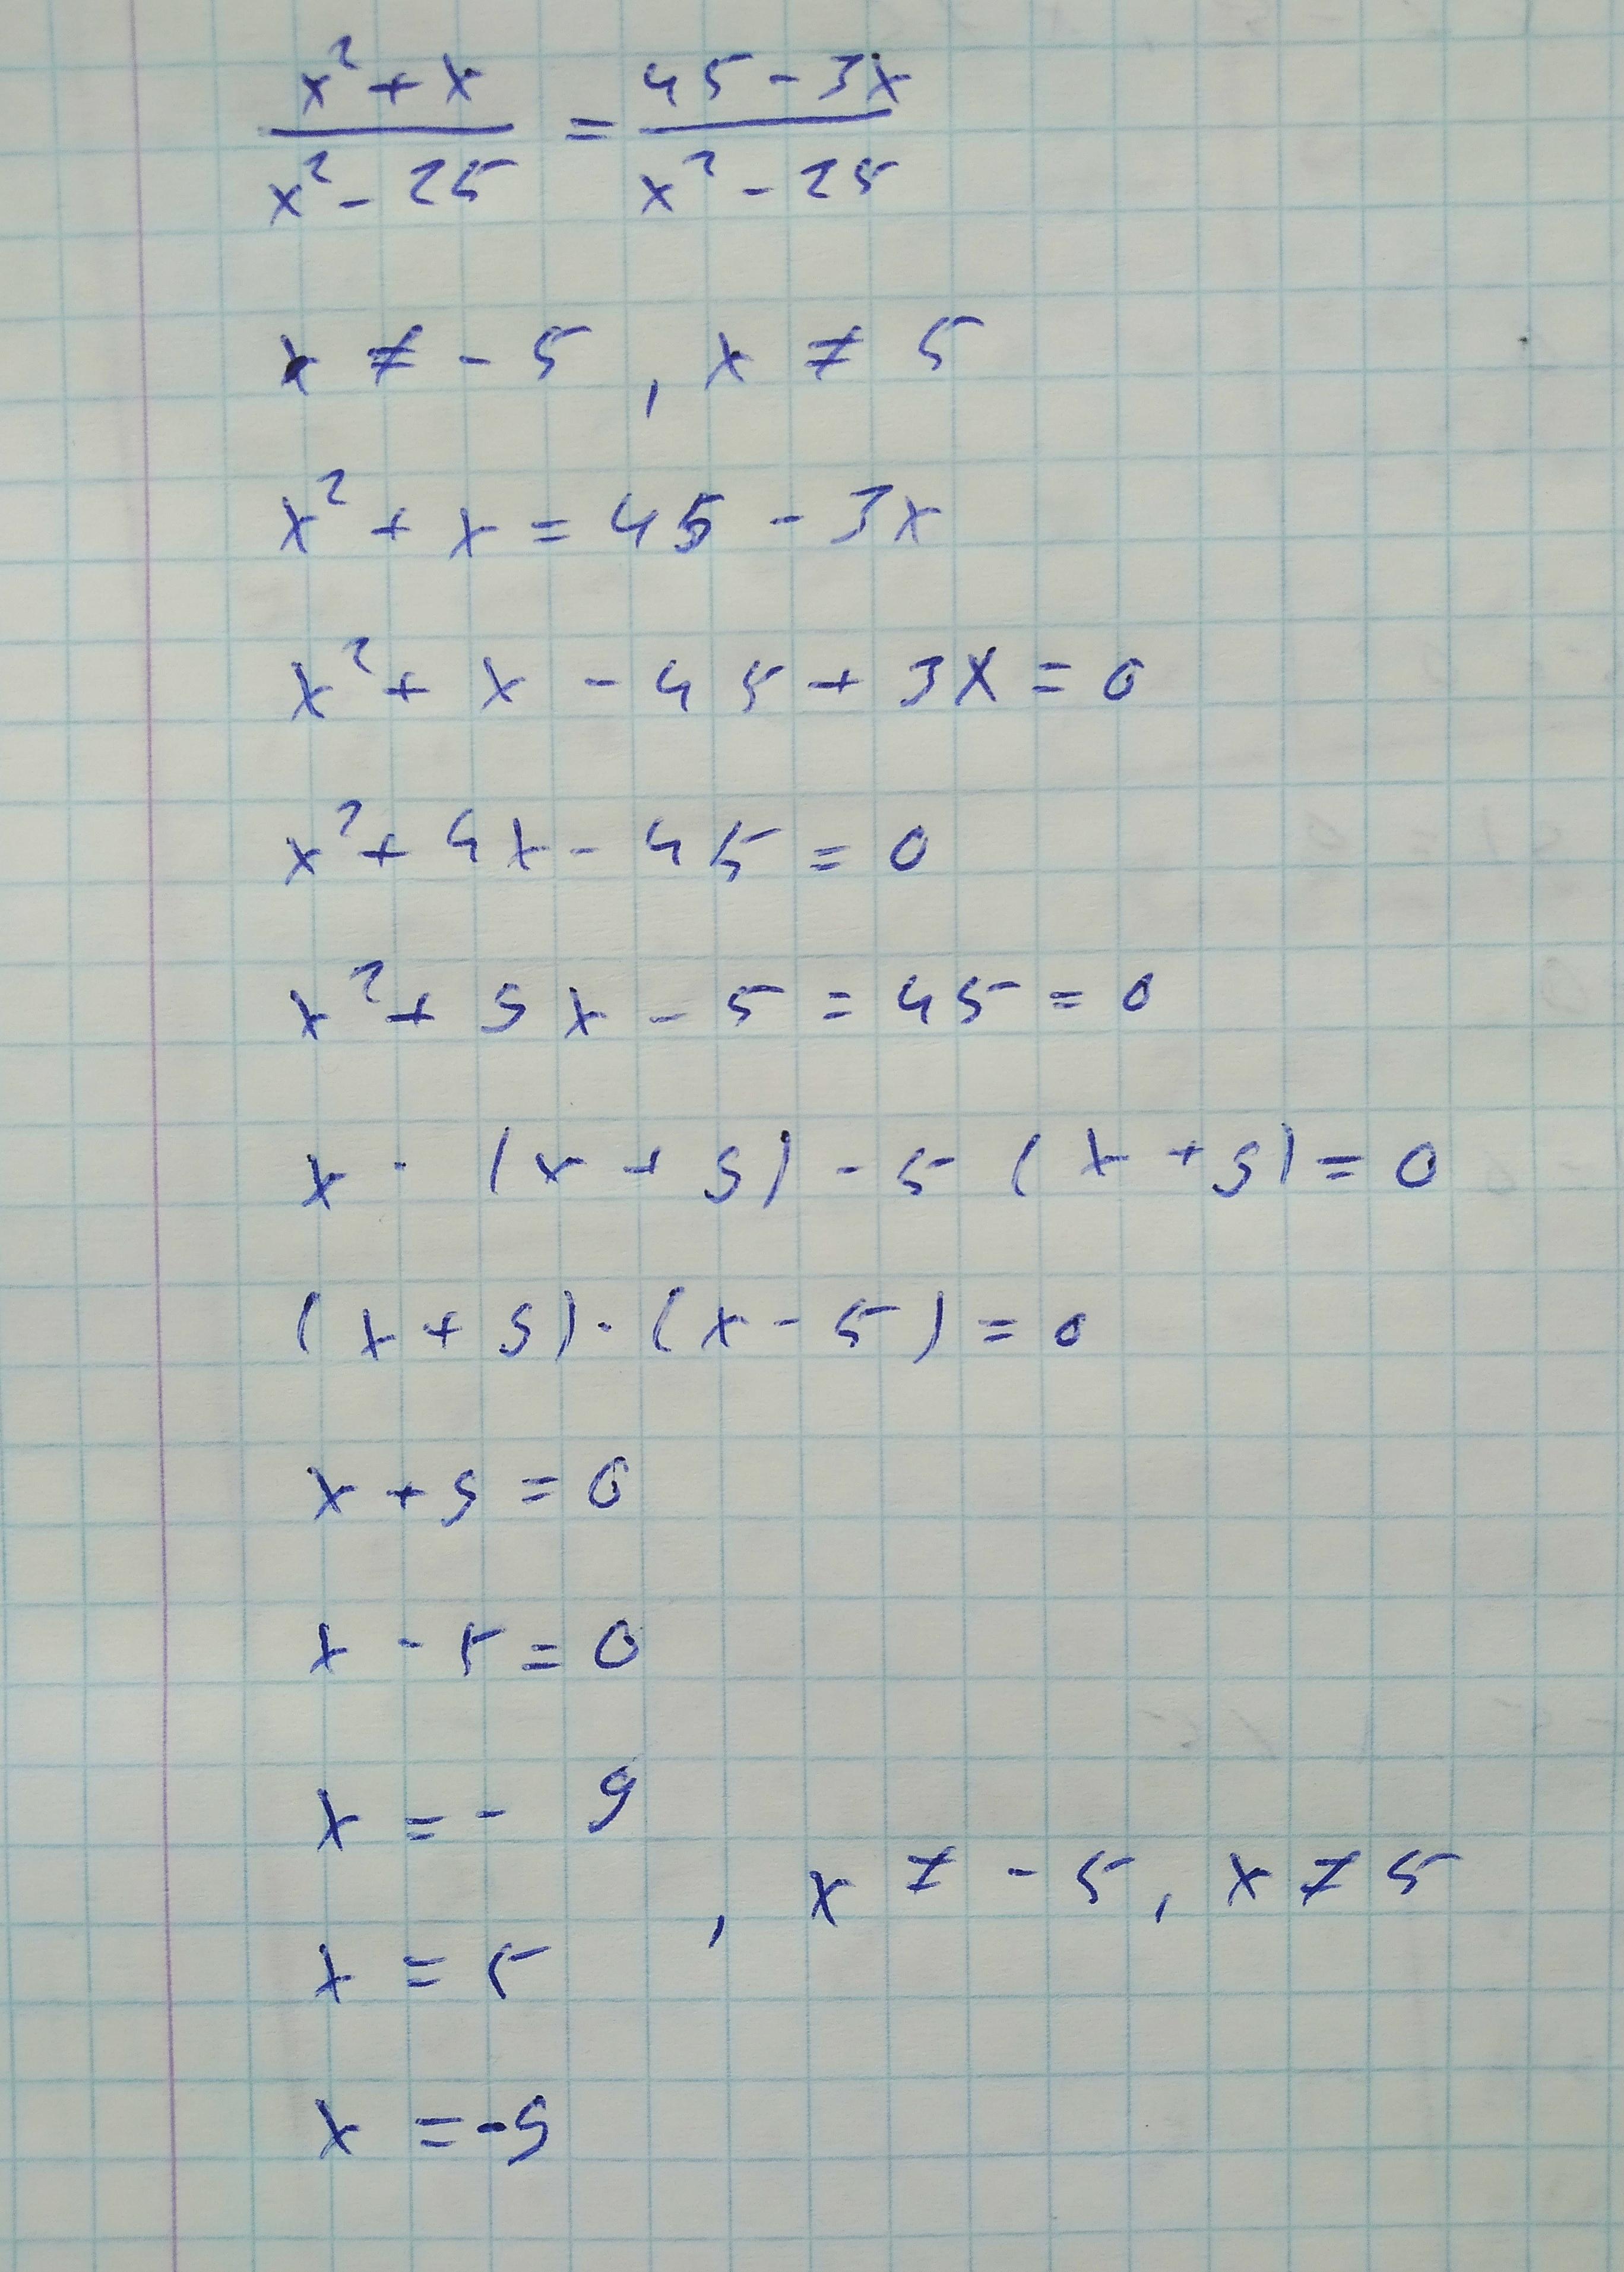 x² + x / x² - 25 = 45 - 3x / x² - 25
x ≠ - 5 , x ≠ 5
x² + x = 45 - 3x
x² + x - 45 + 3x = 0
x² + 4x - 45 = 0
x² + 9x - 5 = 45 = 0
x · (x + 9) - 5 (x + 9) = 0
(x + 9) · (x - 5) = 0
x + 9 = 0
x - 5 = 0
x = - 9
, x ≠ - 5, x ≠ 5
x = 5
x = -9